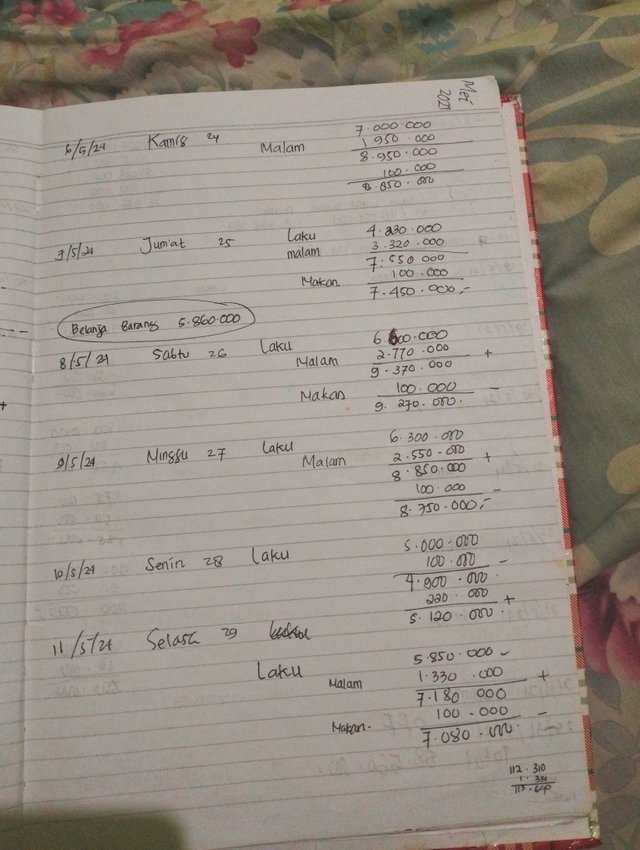 Mei
2021
6/5/21 Kamis 24 Malam 7.000.000
1.950.000
8.950.000
100.000
8.850.000
7/5/21 Jum'at 25 Laku 4.230.000
malam 3.320.000
7.550.000
Makan 100.000
7.450.000,-
Belanja Barang 5.860.000
8/5/21 Sabtu 26 Laku 6.600.000
Malam 2.770.000 +
9.370.000
Makan 100.000 -
9.270.000.
9/5/21 Minggu 27 Laku 6.300.000
Malam 2.550.000 +
8.850.000
100.000 -
8.750.000,-
10/5/21 Senin 28 Laku 5.000.000
100.000 -
4.900.000
220.000 +
5.120.000
11/5/21 Selasa 29
Laku 5.850.000
Malam 1.330.000 +
7.180.000
Makan 100.000 -
7.080.000
112.310
113.640